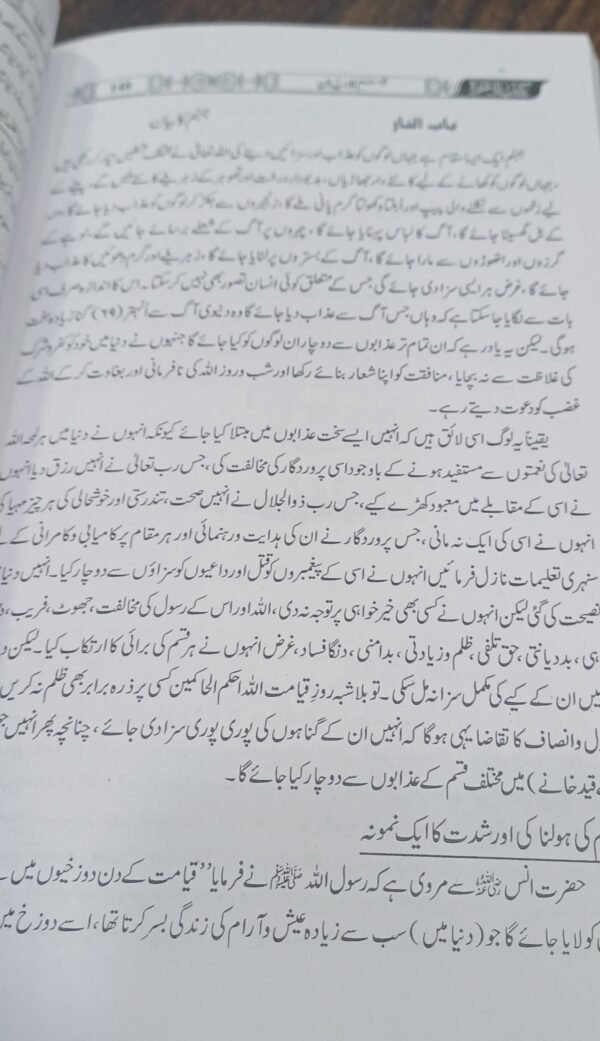 باب النار جہنم کا بیان
جہنم ایک ایسا مقام ہے جہاں لوگوں کو عذاب اور سزائیں دینے کی اللہ تعالیٰ نے مختلف شکلیں تیار کر رکھی ہیں
، جہاں لوگوں کو کھانے کے لیے کانٹے دار جھاڑیاں، بدبودار درخت اور تھوہر کے زہریلے کانٹے ملیں گے، پینے کے
لیے زخموں سے نکلنے والی پیپ اور ابلتا کھولتا گرم پانی ملے گا، زنجیروں سے جکڑ کر لوگوں کو عذاب دیا جائے گا،
کے بل گھسیٹا جائے گا، آگ کا لباس پہنایا جائے گا، چہروں پر آگ کے شعلے برسائے جائیں گے، لوہے کے
گرزوں اور ہتھوڑوں سے مارا جائے گا، آگ کے بستروں پر لٹایا جائے گا، زہریلے اور گرم دھوئیں کا عذاب دیا
جائے گا، غرض ہر ایسی سزا دی جائے گی جس کے متعلق کوئی انسان تصور بھی نہیں کر سکتا۔ اس کا اندازہ صرف اسی
بات سے لگایا جا سکتا ہے کہ وہاں جس آگ سے عذاب دیا جائے گا وہ دنیوی آگ سے اُنہتر (۶۹) گنا زیادہ سخت
ہوگی۔ لیکن یہ یاد رہے کہ ان تمام تر عذابوں سے دوچار ان لوگوں کو کیا جائے گا جنہوں نے دنیا میں خود کو کفر و شرک
کی غلاظت سے نہ بچایا، منافقت کو اپنا شعار بنائے رکھا اور شب و روز اللہ کی نافرمانی اور بغاوت کر کے اللہ کے
غضب کو دعوت دیتے رہے۔
یقیناً یہ لوگ اسی لائق ہیں کہ انہیں ایسے سخت عذابوں میں مبتلا کیا جائے کیونکہ انہوں نے دنیا میں ہر لمحہ اللہ
تعالیٰ کی نعمتوں سے مستفید ہونے کے باوجود اسی پروردگار کی مخالفت کی، جس رب تعالیٰ نے انہیں رزق دیا انہوں
نے اسی کے مقابلے میں معبود کھڑے کیے، جس رب ذوالجلال نے انہیں صحت، تندرستی اور خوشحالی کی ہر چیز مہیا کی
انہوں نے اسی کی ایک نہ مانی، جس پروردگار نے ان کی ہدایت و رہنمائی اور ہر مقام پر کامیابی و کامرانی کے
سنہری تعلیمات نازل فرمائیں انہوں نے اسی کے پیغمبروں کو قتل اور داعیوں کو سزاؤں سے دوچار کیا۔ انہیں دنیا
نصیحت کی گئی لیکن انہوں نے کسی بھی خیر خواہی پر توجہ نہ دی، اللہ اور اس کے رسول کی مخالفت، جھوٹ، فریب،
بددیانتی، حق تلفی، ظلم و زیادتی، بدامنی، دنگا فساد، غرض انہوں نے ہر قسم کی برائی کا ارتکاب کیا۔ لیکن
میں ان کے کیے کی مکمل سزا نہ مل سکی۔ تو بلاشبہ روزِ قیامت اللہ احکم الحاکمین کسی پر ذرہ برابر بھی ظلم نہ کریں
و انصاف کا تقاضا یہی ہوگا کہ انہیں ان کے گناہوں کی پوری پوری سزا دی جائے، چنانچہ پھر انہیں
قید خانے) میں مختلف قسم کے عذابوں سے دوچار کیا جائے گا۔
کی ہولناکی اور شدت کا ایک نمونہ
حضرت انس رضی اللہ عنہ سے مروی ہے کہ رسول اللہ ﷺ نے فرمایا ”قیامت کے دن دوزخیوں میں
کو لایا جائے گا جو (دنیا میں) سب سے زیادہ عیش و آرام کی زندگی بسر کرتا تھا، اسے دوزخ میں